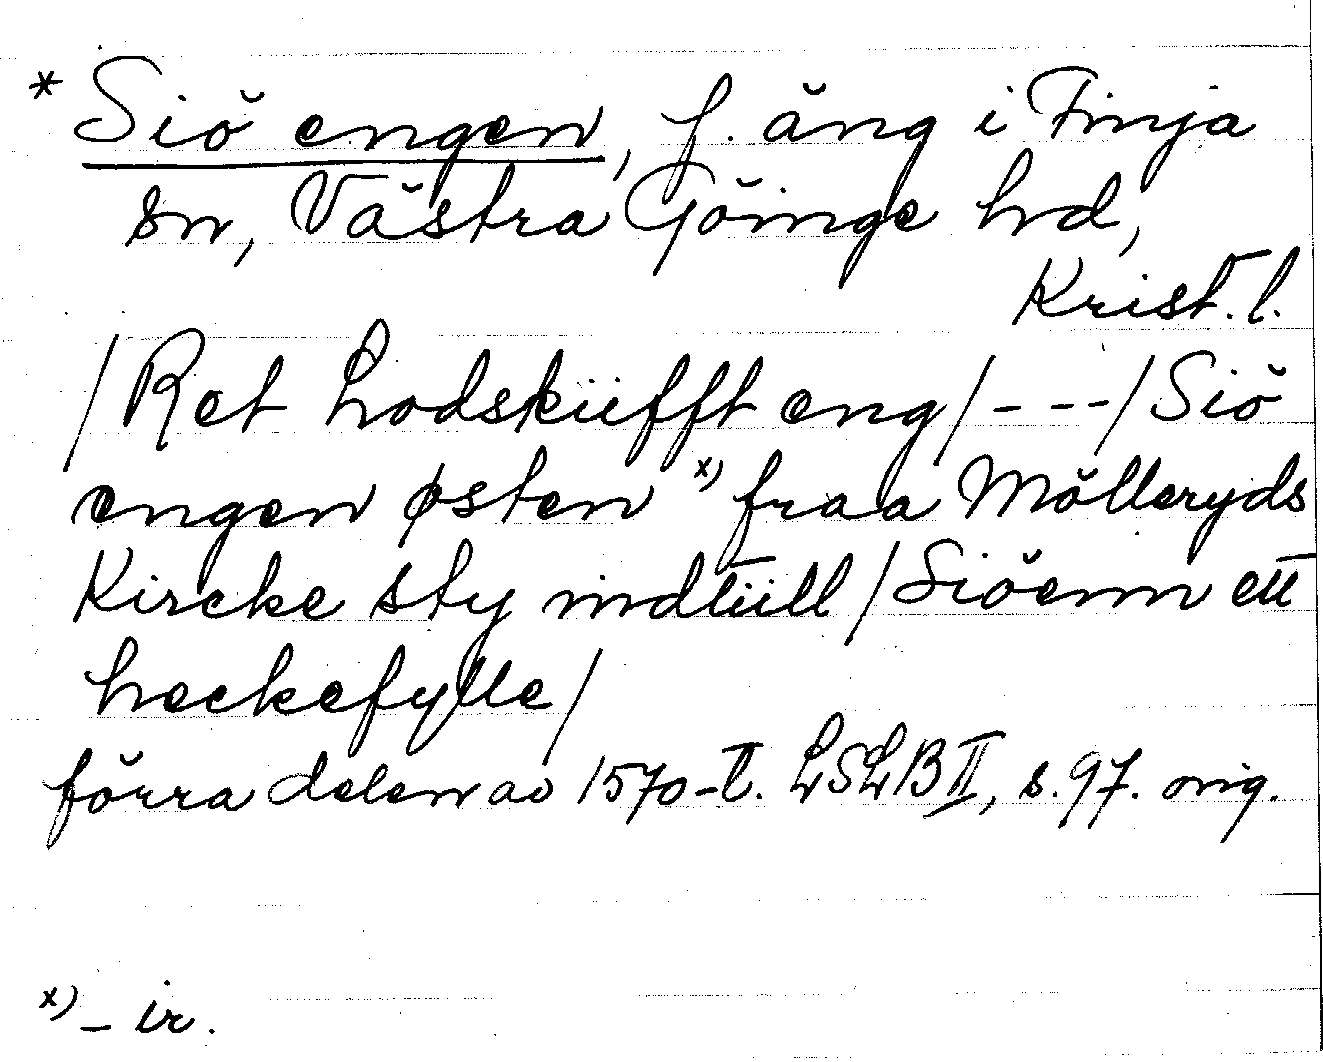 * Siö engen, f. äng i Finja
sn, Västra Göinge hd,
Krist. l.
/Ret Lodsküfft eng/ - - -/ Siö
engen østen x) fraa Mölleryds
Kircke sty indtüll / Siöenn ett
heckefylle/
förra delen av 1570-t. LSLB II, s. 97. orig.
x) - ir.